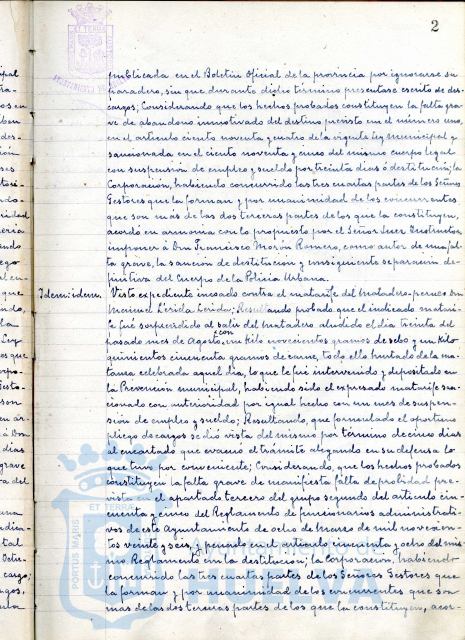 2
publicada en el Boletin Oficial de la provincia por ignorarse su
paradero, sin que durante dicho término presentase escrito de des-
cargos; Considerando que los hechos probados constituyen la falta gra-
ve de abandono inmotivado del destino previsto en el número uno,
en el articulo ciento noventa y cuatro de la vigente Ley municipal y
sancionada en el ciento noventa y cinco del mismo cuerpo legal
con suspensión de empleo y sueldo por treinta dias ó destitución; la
Corporación, habiendo concurrido las tres cuartas partes de los Señores
Gestores que la forman y por unanimidad de los concurrentes
que son mas de las dos terceras partes de los que la constituyen,
acordó en armonia con lo propuesto por el Señor Juez Instructor
imponer á Don Francisco Morón Romero, como autor de una fal-
ta grave, la sanción de destitución y consiguiente separación de-
finitiva del Cuerpo de la Policia Urbana.
Idem: idem. Visto expediente incoado contra el matarife del Matadero
Lérida; Resultando probado que el indicado matari-
fe fué sorprendido al salir del matadero aludido el dia treinta del
pasado mes de Agosto, con un kilo novecientos gramos de sebo y un kilo
quinientos cincuenta gramos de carne, todo ello hurtado de la ma-
tanza celebrada aquel dia, lo que le fué intervenido y depositado en
la Prevención municipal, habiendo sido el expresado matarife san-
cionado con anterioridad por igual hecho con un mes de suspen-
sión de empleo y sueldo; Resultando, que formulado el oportuno
pliego de cargos se dió vista del mismo por término de cinco dias
al encartado que evacuó el trámite alegando en su defensa lo
que tuvo por conveniente; Considerando, que los hechos probados
constituyen la falta grave de manifiesta falta de probidad pre-
vista en el apartado tercero del grupo segundo del articulo cin-
cuenta y cinco del Reglamento de funcionarios administrati-
vos de este Ayuntamiento de ocho de marzo de mil novecien-
tos veinte y seis, y penada en el articulo cincuenta y ocho del mis-
mo Reglamento con la destitución; la Corporación, habiendo
concurrido las tres cuartas partes de los Señores Gestores que
la forman y por unanimidad de los concurrentes que son
mas de las dos terceras partes de los que la constituyen, acor-
Ayuntamiento de
PORTUS MARIS
ET TERRA